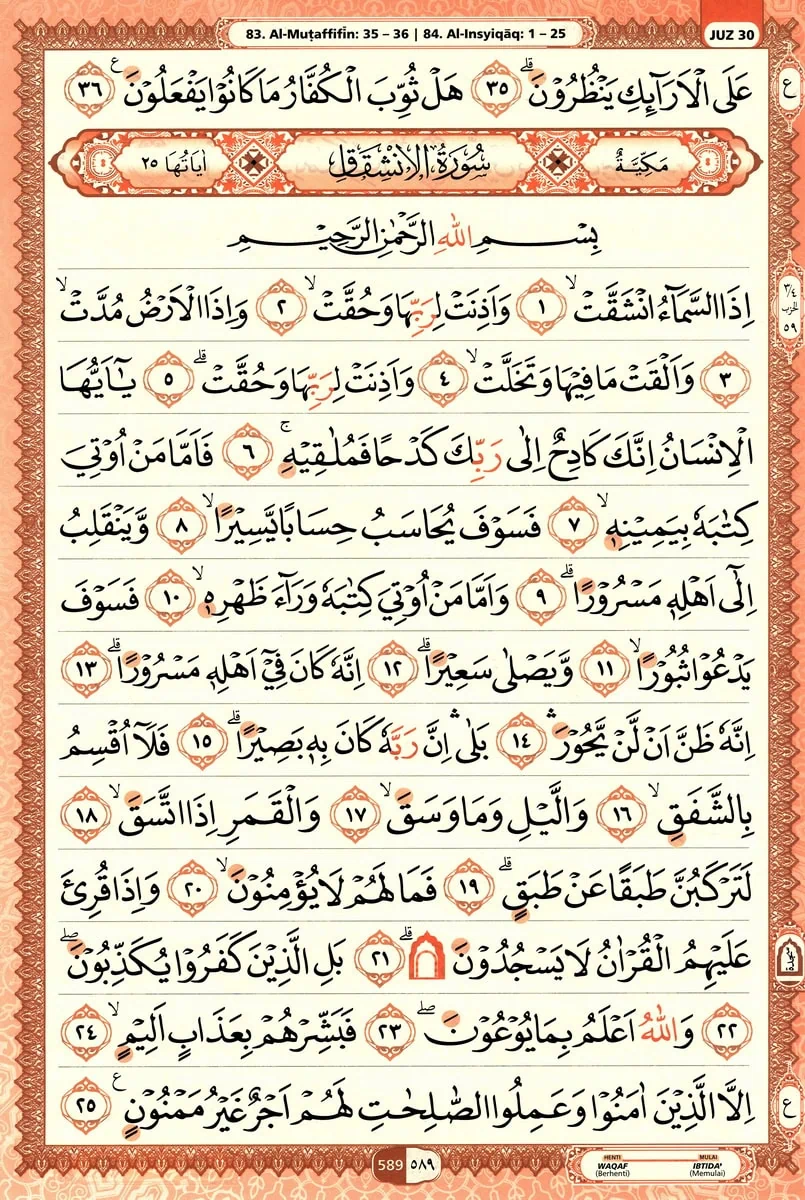 83. Al-Muṭaffifīn: 35 – 36 | 84. Al-Insyiqāq: 1 – 25
JUZ 30
عَلَى الْاَرَاۤىِٕكِ يَنْظُرُوْنَۗ ٣٥ هَلْ ثُوِّبَ الْكُفَّارُ مَا كَانُوْا يَفْعَلُوْنَࣖ ٣٦
ع
مَكِّيَّةٌ سُوْرَةُ الْاِنْشِقَاقِ اٰيَاتُهَا ٢٥
بِسْمِ اللّٰهِ الرَّحْمٰنِ الرَّحِيْمِ
اِذَا السَّمَاۤءُ انْشَقَّتْۙ ١ وَاَذِنَتْ لِرَبِّهَا وَحُقَّتْۙ ٢ وَاِذَا الْاَرْضُ مُدَّتْۙ
٣/٤
الحزب
٥٩
٣ وَاَلْقَتْ مَا فِيْهَا وَتَخَلَّتْۙ ٤ وَاَذِنَتْ لِرَبِّهَا وَحُقَّتْۗ ٥ يٰٓاَيُّهَا
الْاِنْسَانُ اِنَّكَ كَادِحٌ اِلٰى رَبِّكَ كَدْحًا فَمُلٰقِيْهِۚ ٦ فَاَمَّا مَنْ اُوْتِيَ
كِتٰبَهٗ بِيَمِيْنِهٖۙ ٧ فَسَوْفَ يُحَاسَبُ حِسَابًا يَّسِيْرًاۙ ٨ وَّيَنْقَلِبُ
اِلٰٓى اَهْلِهٖ مَسْرُوْرًاۗ ٩ وَاَمَّا مَنْ اُوْتِيَ كِتٰبَهٗ وَرَاۤءَ ظَهْرِهٖۙ ١٠ فَسَوْفَ
يَدْعُوْا ثُبُوْرًاۙ ١١ وَّيَصْلٰى سَعِيْرًاۗ ١٢ اِنَّهٗ كَانَ فِيْٓ اَهْلِهٖ مَسْرُوْرًاۗ ١٣
اِنَّهٗ ظَنَّ اَنْ لَّنْ يَّحُوْرَۛ ١٤ بَلٰىۛ اِنَّ رَبَّهٗ كَانَ بِهٖ بَصِيْرًاۗ ١٥ فَلَآ اُقْسِمُ
بِالشَّفَقِۙ ١٦ وَالَّيْلِ وَمَا وَسَقَۙ ١٧ وَالْقَمَرِ اِذَا اتَّسَقَۙ ١٨
لَتَرْكَبُنَّ طَبَقًا عَنْ طَبَقٍۗ ١٩ فَمَا لَهُمْ لَا يُؤْمِنُوْنَۙ ٢٠ وَاِذَا قُرِئَ
عَلَيْهِمُ الْقُرْاٰنُ لَا يَسْجُدُوْنَۗ ۩ ٢١ بَلِ الَّذِيْنَ كَفَرُوْا يُكَذِّبُوْنَۖ
سجدة
٢٢ وَاللّٰهُ اَعْلَمُ بِمَا يُوْعُوْنَۖ ٢٣ فَبَشِّرْهُمْ بِعَذَابٍ اَلِيْمٍۙ ٢٤
اِلَّا الَّذِيْنَ اٰمَنُوْا وَعَمِلُوا الصّٰلِحٰتِ لَهُمْ اَجْرٌ غَيْرُ مَمْنُوْنٍࣖ ٢٥
ع
589 ٥٨٩
HENTI MULAI
WAQAF IBTIDA'
(Berhenti) (Memulai)